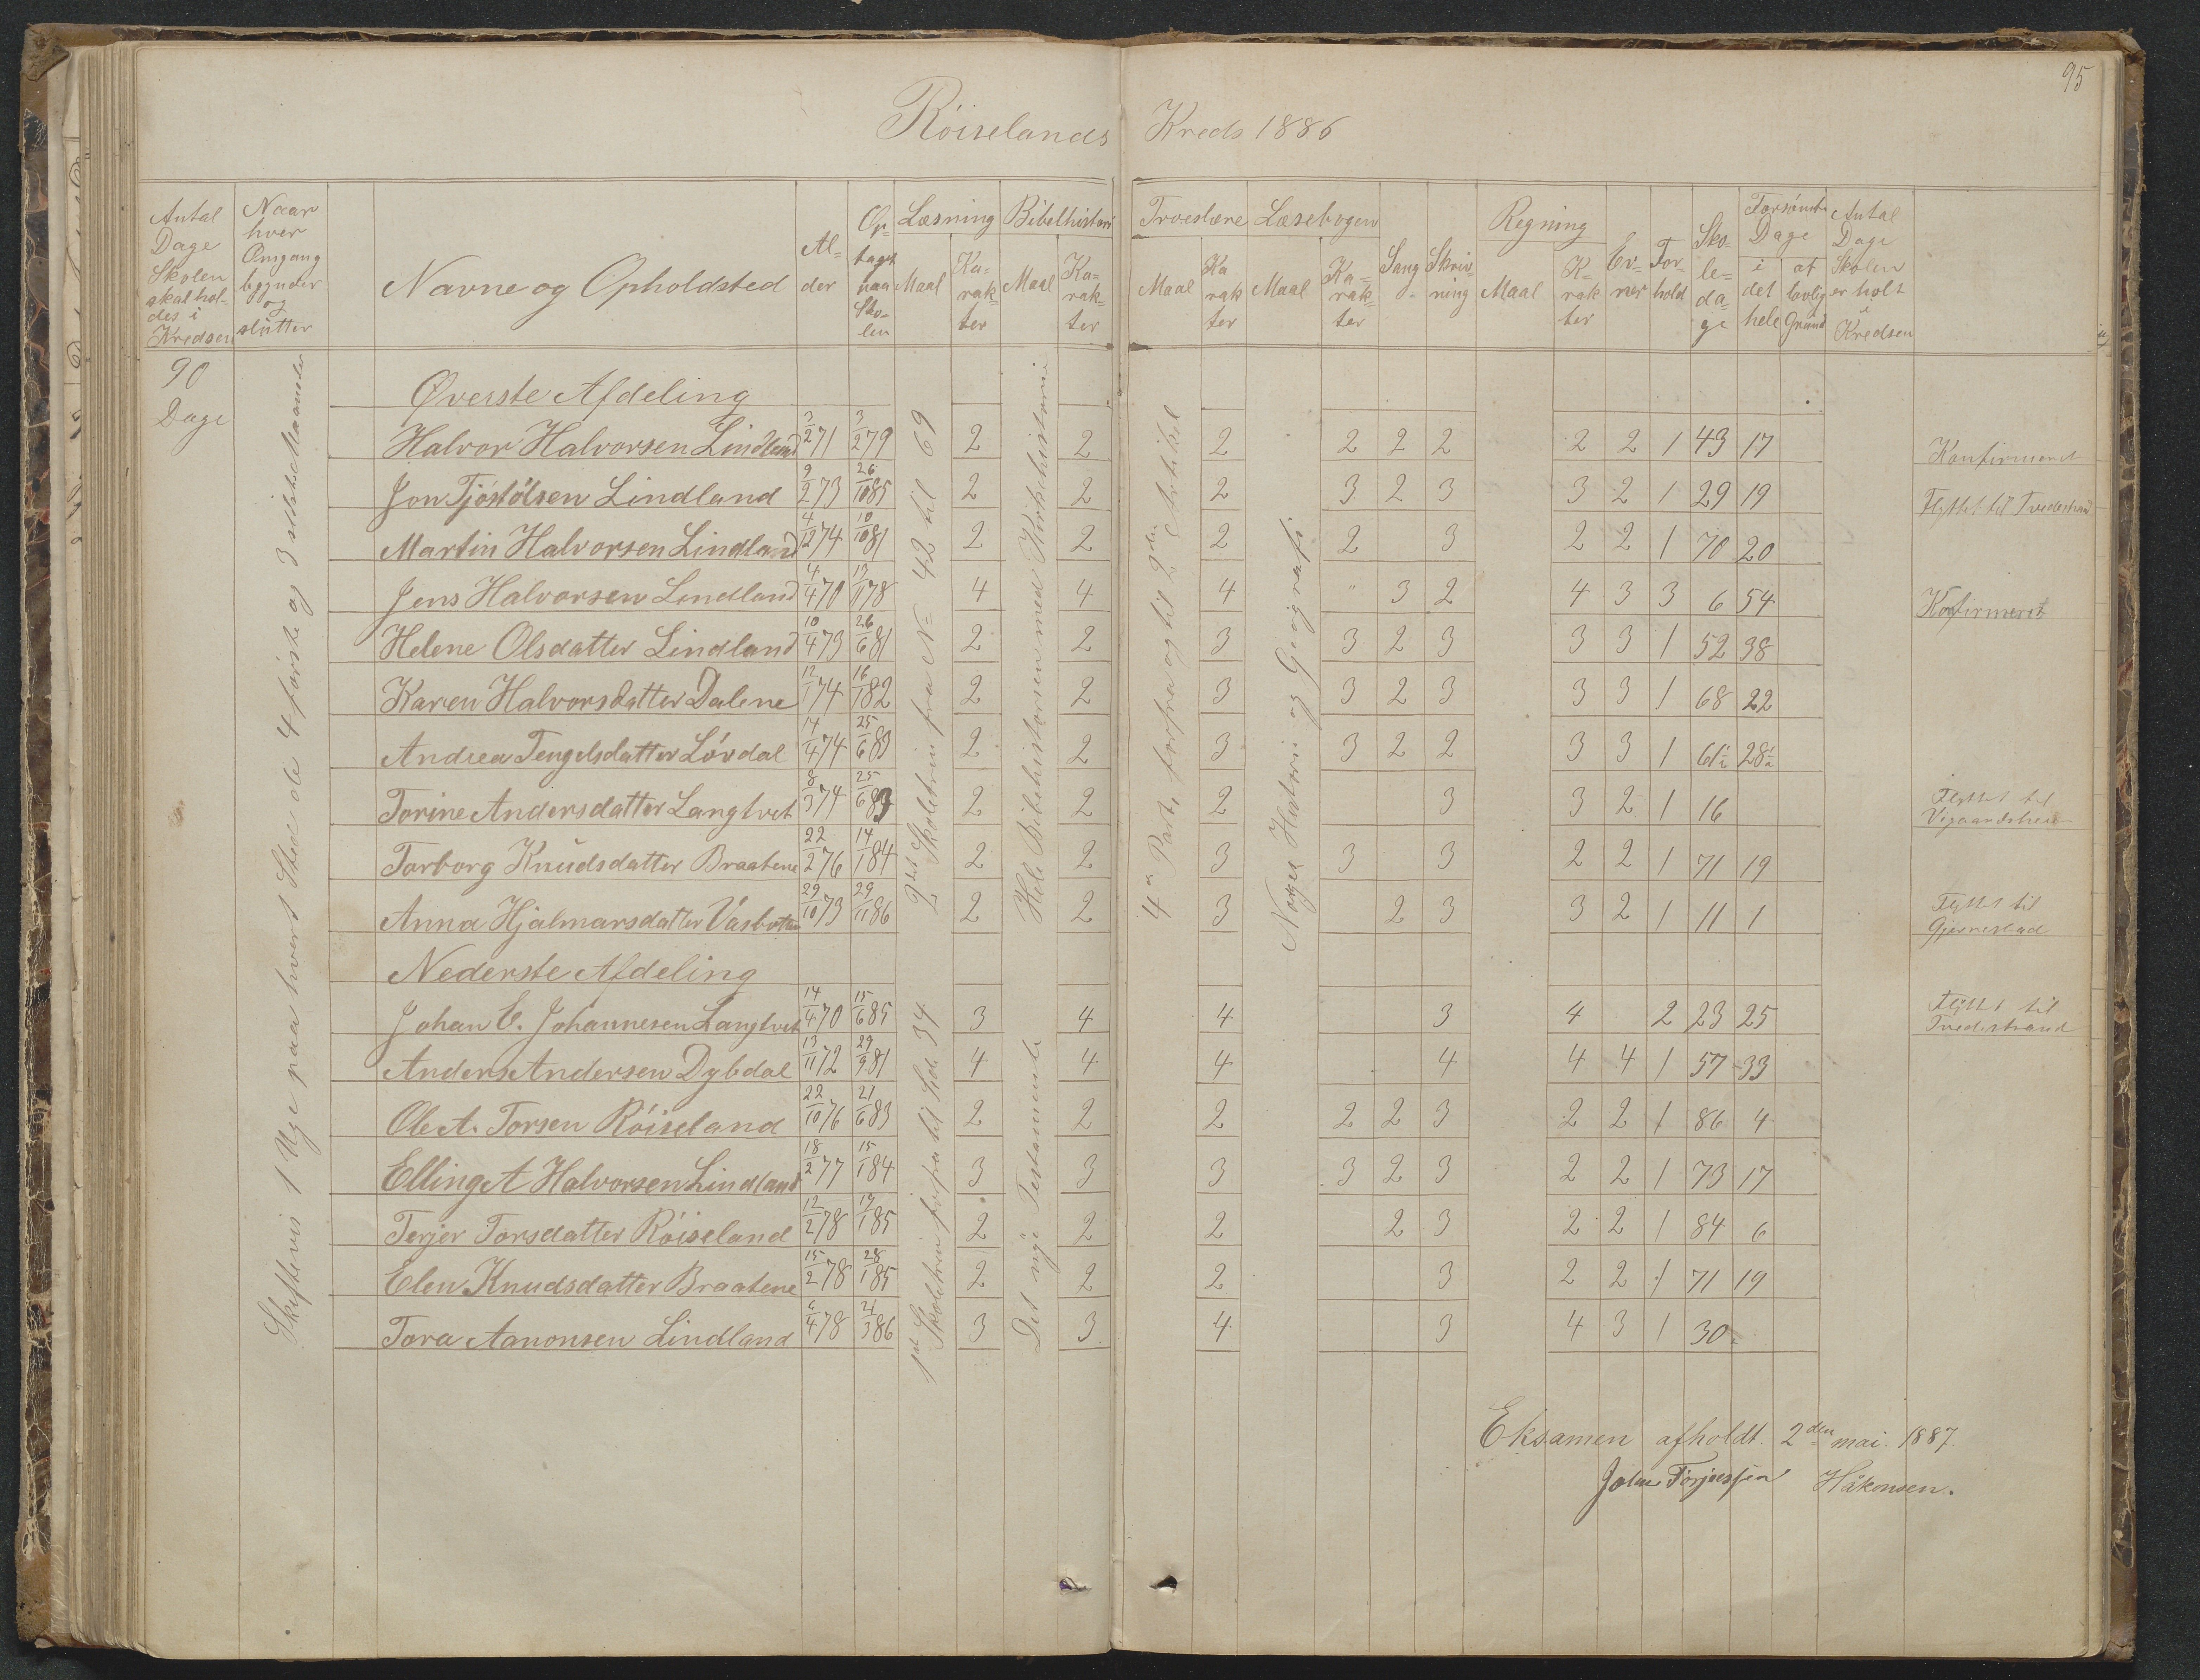 95
Röiselands Kreds 1886
Antal Dage Skolen skal holdes i Kredsen
Naar hver Omgang begynder og slutter
Navne og Opholdsted
Alder
Optaget paa Skolen
Læsning Maal Karakter
Bibelhistori Maal Karakter
Troeslære Maal Karakter
Læsebogen Maal Karakter
Sang
Skrivning
Regning Maal Karakter
Evner
Forhold
Skoledage
Forsömte Dage i det hele af lovlig Grund
Antal Dage Skolen er holt i Kredsen
90 Dage
Skiftevis 1 Uge paa hvert Sted de 4 første og 3 sidste Maaneder
2det Skoletrin fra No 42 til 69
Hele Bibelhistorien med Kirkehistorie
4de Part, forfra og til 2den Artikel
Norges Historie og Geografi
Øverste Afdeling
Halvor Halvorsen Lindland 3/2 71 3/2 79 2 2 2 2 2 2 2 2 1 43 17 Konfirmeret
Jon Tjöstölsen Lindland 9/2 73 26/10 85 2 2 2 3 2 3 3 2 1 29 19 Flyttet til Tvedestrand
Martin Halvorsen Lindland 4/12 74 10/10 81 2 2 2 2 3 2 2 1 70 20
Jens Halvorsen Lindland 4/4 70 13/1 78 4 4 4 " 3 2 4 3 3 6 54 Kofirmeret
Helene Olsdatter Lindland 10/4 73 26/6 81 2 2 3 3 2 3 3 3 1 52 38
Karen Halvorsdatter Dalene 12/1 74 16/1 82 2 2 3 3 2 3 3 3 1 68 22
Andrea Tengelsdatter Lövdal 14/4 74 25/6 83 2 2 3 3 2 2 3 3 1 61½ 28½
Torine Andersdatter Langtvet 8/3 74 25/6 83 2 2 2 3 3 2 1 16 Flyttet til Vigaardsheien
Torborg Knudsdatter Braatene 22/2 76 14/1 84 2 2 3 3 3 2 2 1 71 19
Anna Hjalmarsdatter Vasbotten 29/10 73 29/11 86 2 2 3 2 3 3 2 1 11 1 Flyttet til Gjerrestad
Nederste Afdeling
1ste Skoletrin forfra til Sid. 34
Det nye Testamente
Johan E. Johannesen Langtvet 14/4 70 15/6 85 3 4 4 3 4 2 23 25 Flyttet til Tvedestrand
Anders Andersen Dybdal 13/11 72 29/9 81 4 4 4 4 4 4 1 57 33
Ole A. Torsen Röiseland 22/10 76 21/6 83 2 2 2 2 2 3 2 2 1 86 4
Elling A Halvorsen Lindland 18/2 77 15/1 84 3 3 3 3 2 3 2 2 1 73 17
Terjer Torsdatter Röiseland 12/2 78 19/1 85 2 2 2 2 3 2 2 1 84 6
Elen Knudsdatter Braatene 15/2 78 28/1 85 2 2 2 3 2 2 1 71 19
Tora Aanonsen Lindland 6/4 78 21/3 86 3 3 4 3 4 3 1 30
Eksamen afholdt 2den mai 1887.
Torjessen Håkonsen.